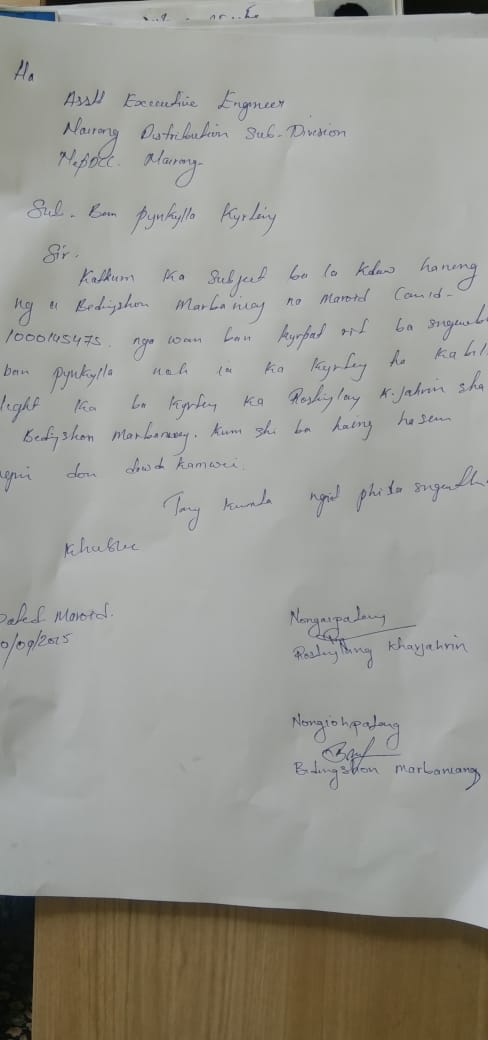 Ha
Asstt Executive Engineer
Mairang Distribution Sub-Division
MePDCL. Mairang
Sub. Ban pynkylla Kyrteng
Sir.
Katkum ka Subject ba la kdew haneng
nga u Bedingshon Marbaniang na Maroid Con.id-
1000145475. nga wan ban kyrpad
ban pynkylla noh ia ka Kyrteng ha ka bill
light ka ba kyrteng ka Roshiylang K.Jahrin sha
Bedyshon Marbaniang. Kum shi ba haing hasem
don dawd kamwei.
Tang kumta ngin phi da sngewth
Khublei
Dated Maroid.
0/09/2025
Nongaipateng
Roshiylang Kharjahrin
Nongiohpateng
Bedingshon Marbaniang